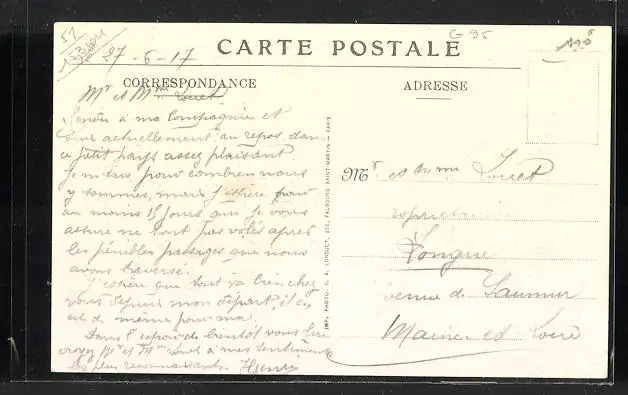 51
27-6-17
G 95
CARTE POSTALE
CORRESPONDANCE
ADRESSE
Mr et Mme Louet
à ma Compagnie et
actuellement au repos dans
ce petit pays assez plaisant.
Je ne sais pour combien nous
y sommes, mais j'espère pour
au moins 15 jours que je vous
assure ne sont pas volés après
les pénibles passages que nous
avons traversé.
J'espère que tout va bien chez
vous depuis mon départ, il en
est de même pour moi.
Dans l'espoir de bientôt vous lire
croyez Mr et Mme Louet à mes sentiments
les plus reconnaissants. Henri
IMP. PHOTO. D. A. LONGUET, 250, FAUBOURG SAINT-MARTIN — PARIS
Mr et Mme Louet
Longué
venue de Saumur
Maine et Loire